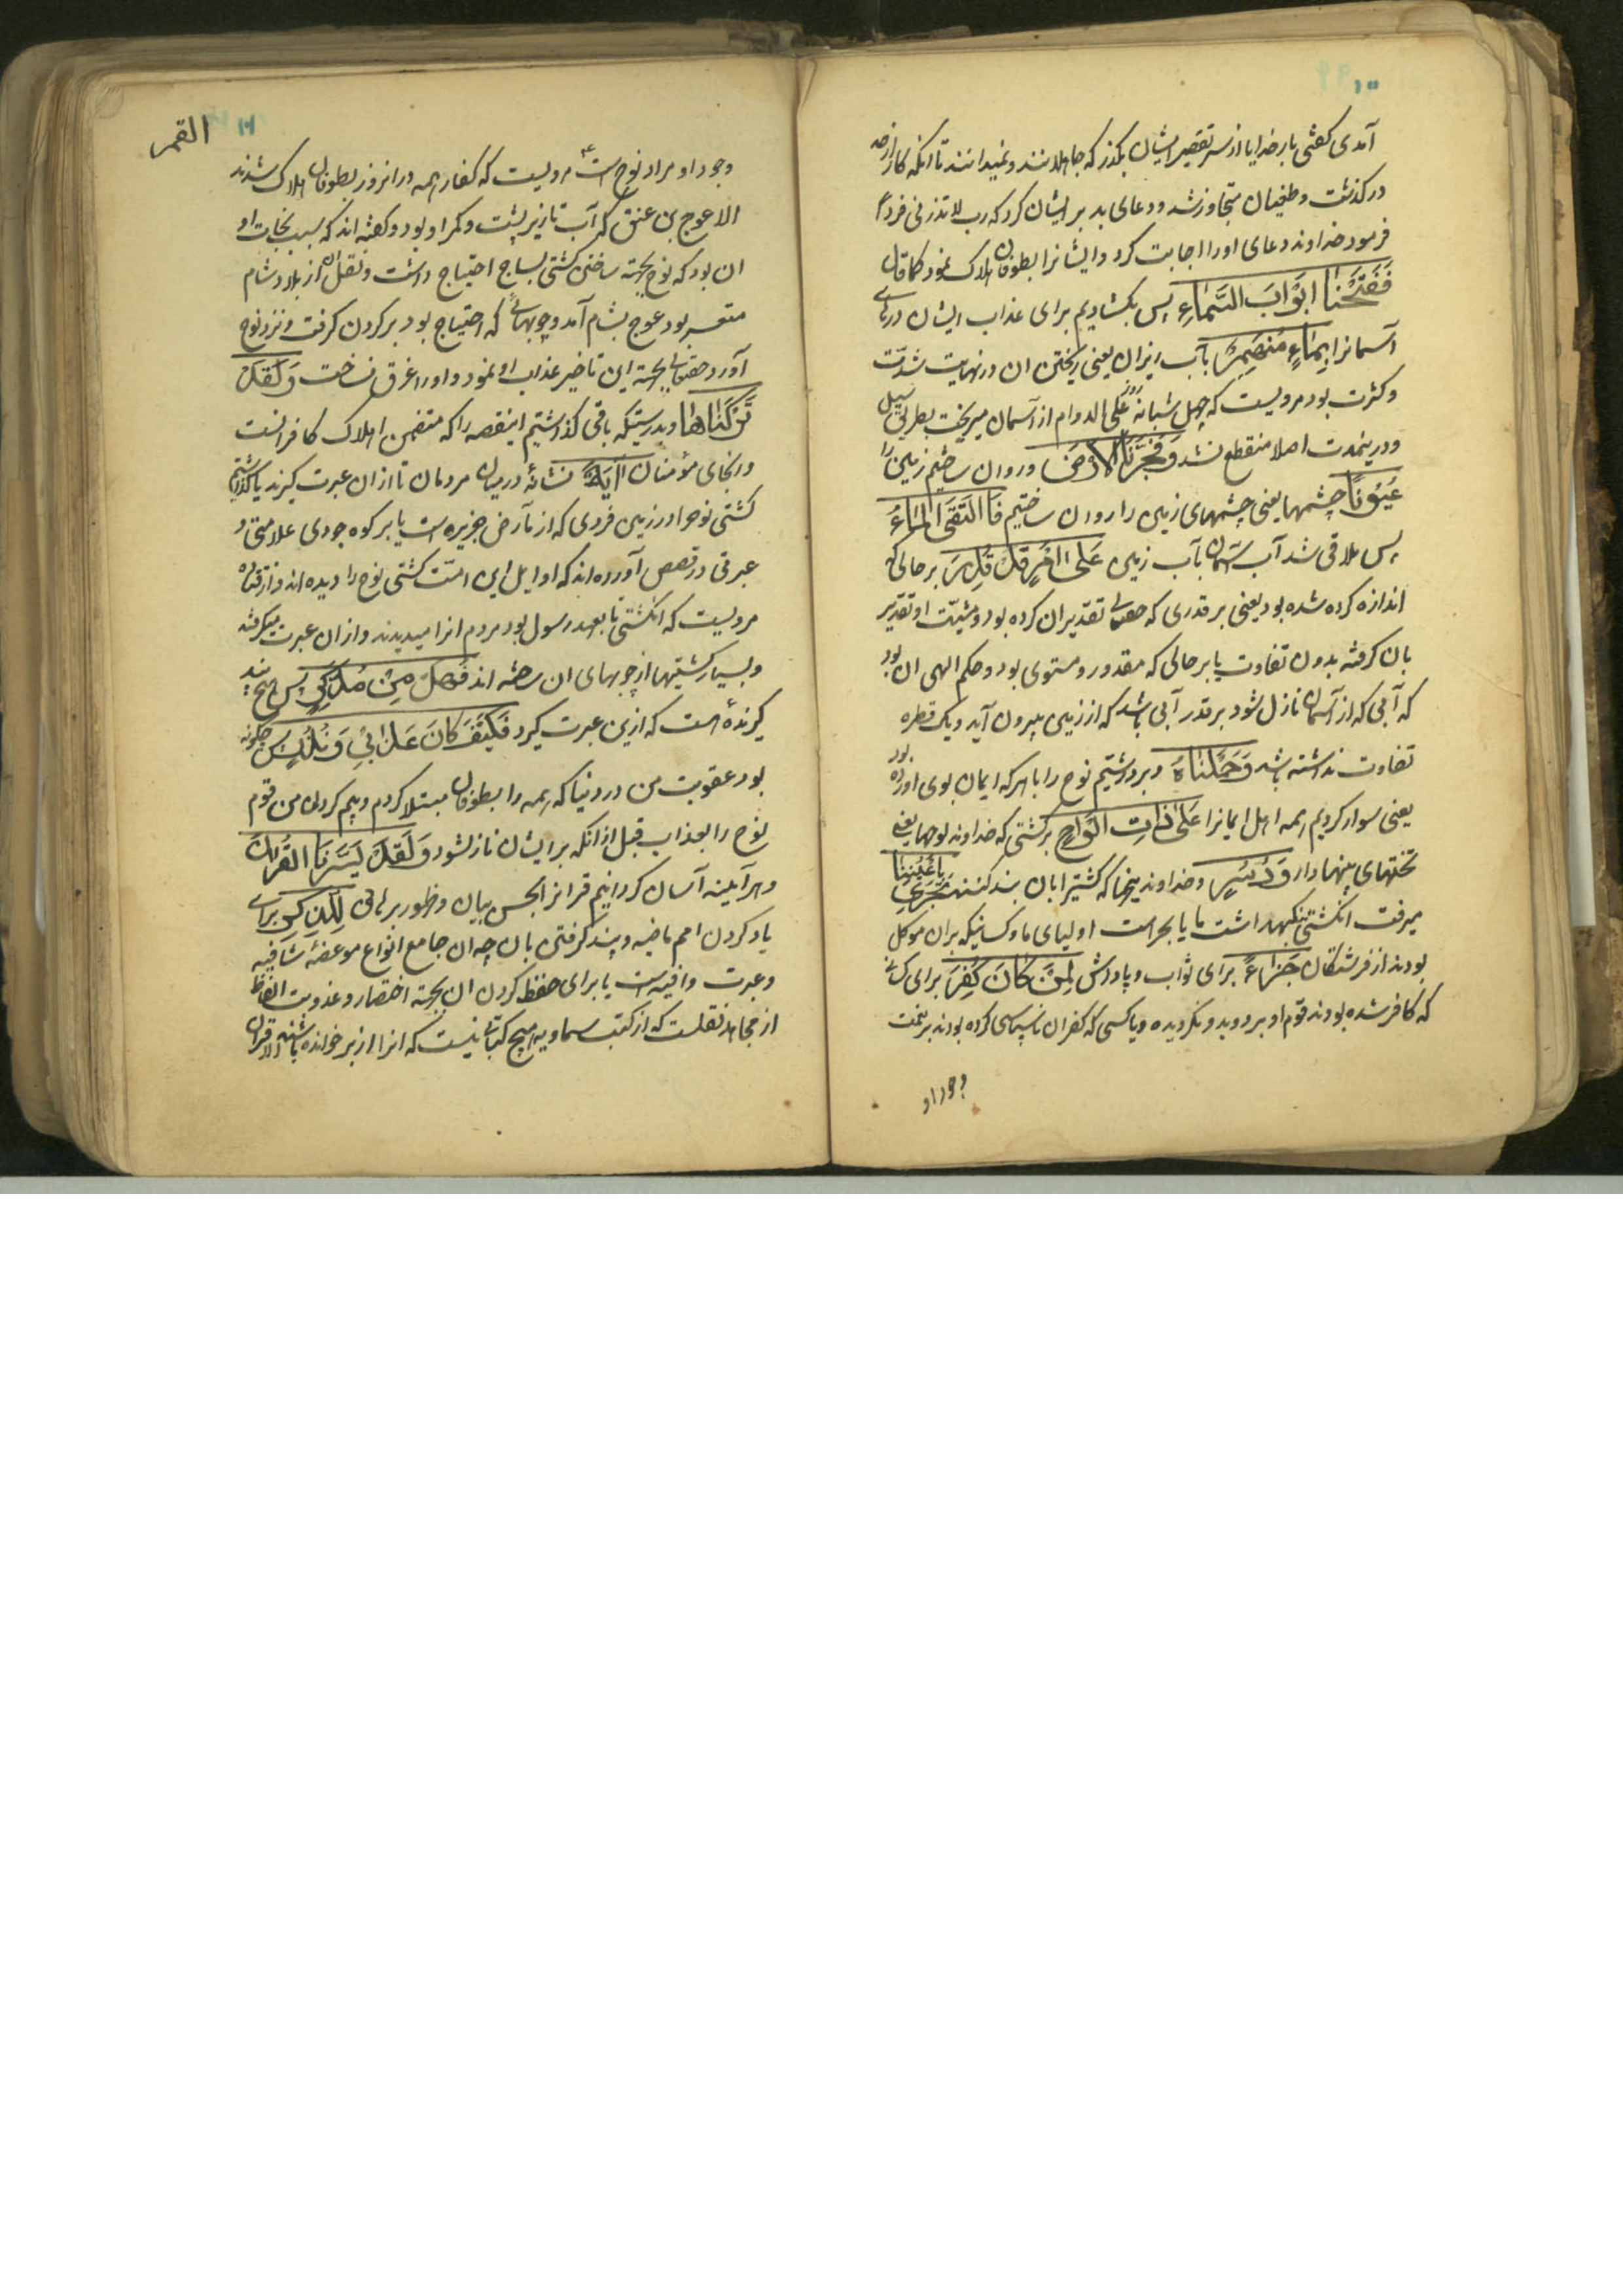 ۱۰۰
آمدی گفتی بار خدایا از سر تقصیر ایشان بگذر که جاهلانند و نمیدانند تا انکه کار از حد
درگذشت و طغیان متجاوز شد و دعای بد بر ایشان کرد که رب لا تذرنی فردا
فرمود خداوند دعای او را اجابت کرد و ایشانرا بطوفان هلاک نمود کما قال
فَفَتَحْنا ابْوَابَ السَّمَاءِ پس بکشادیم برای عذاب ایشان درهای
آسمانرا بِمَاءٍ مُنهَمِرٍ بآب ریزان یعنی ریختن ان در نهایت شدّت
و کثرت بود مرویست که چهل شبانه روز علی الدوام از آسمان میریخت بطریق سیل
و درینمدت اصلا منقطع نشد وَفَجَّرْنَا الاَرْضَ و روان ساختیم زمین را
عُیُونًا چشمها یعنی چشمهای زمین را روان ساختیم فَالْتَقَی الْمَاءُ
پس ملاقی شد آب آسمان بآب زمین عَلی امْرٍ قَدْ قُدِرَ بر حالی که
اندازه کرده شده بود یعنی بر قدری که حقتعالی تقدیر ان کرده بود و مشیّت او تقدیر
بان گرفته بدون تفاوت یا بر حالی که مقدور و مستوی بود و حکم الهی ان بود
که آبی که از آسمان نازل شود بر قدر آبی باشد که از زمین بیرون آید و یک قطره
تفاوت نداشته باشد وَحَمَلْنَاهُ و برداشتیم نوح را با هرکه ایمان بوی اورده بود
یعنی سوار کردیم همه اهل ایمانرا عَلی ذَاتِ الْوَاحٍ بر کشتی که خداوند لوحها یعنی
تختهای پهنها دار وَدُسُرٍ و خداوند میخها که کشتیرا بان بند کنند تَجْرِی بِاَعْیُنِنَا
میرفت انکشتی بنگهداشت ما یا بحراست اولیای ما و کسانیکه بران موکل
بودند از فرشتگان جَزَاءً برای ثواب و پاداش لِمَنْ کَانَ کُفِرَ برای کسانی
که کافر شده بودند قوم او بر دو بد و نگرویده و یا کسی که کفران ناسپاسی کرده بودند بر نعمت
وجود او
القمر
۱۰۱
وجود او مراد نوح است مرویست که کفار همه در انروز بطوفان هلاک شدند
الا عوج بن عنق که آب تا زیر پشت و کمر او بود و گفته اند که سبب نجات او
ان بود که نوح بجهته ساختن کشتی بساج احتیاج داشت و نقل ان از بلاد شام
متعسر بود عوج بشام آمد و چوبهائی که احتیاج بود بر گردن گرفت و نزد نوح
آورد حقتعالی بجهة این تاخیر عذاب او نمود و او را غرق نساخت وَلَقَدْ
تَرَکْنَاهَا و بدرستیکه باقی گذاشتیم اینقصه را که متضمن اهلاک کافرانست
و انجای مؤمنان آیَةً نشانهٔ در میان مردمان تا ازان عبرت گیرند یا گذاشتیم
کشتی نوحرا در زمین فردی که از ارض جزیره است یا بر کوه جودی علامتی و
عبرتی در قصص آورده اند که اوایل این امّت کشتی نوح را دیده اند و از قتاده
مرویست که انکشتی تا بعهد رسول بود مردم انرا میدیدند و ازان عبرت میگرفتند
و بسیار کشتیها از چوبهای ان ساخته اند فَهَلْ مِنْ مُدَّکِرٍ پس هیچ پند
گیرندهٔ هست که ازین عبرت گیرد فَکَیْفَ کَانَ عَذَابِی وَ نُذُرِ پس چگونه
بود عقوبت من در دنیا که همه را بطوفان مبتلا کردم و بیم کردن من قوم
نوح را بعذاب قبل از انکه بر ایشان نازل شود وَ لَقَدْ یَسَّرْنَا الْقُرْانَ
و هرآینه آسان گردانیدیم قرانرا بحسن بیان و ظهور برهان لِلذِّکْرِ برای
یاد کردن امم ماضیه و پند گرفتن بان چه ان جامع انواع موعظهٔ شافیه
و عبرت وافیه است یا برای حفظ کردن ان بجهته اختصار و عذوبت الفاظ
از مجاهد نقلست که از کتب سماویه هیچ کتابی نیست که انرا از بر خوانده باشند الا قران